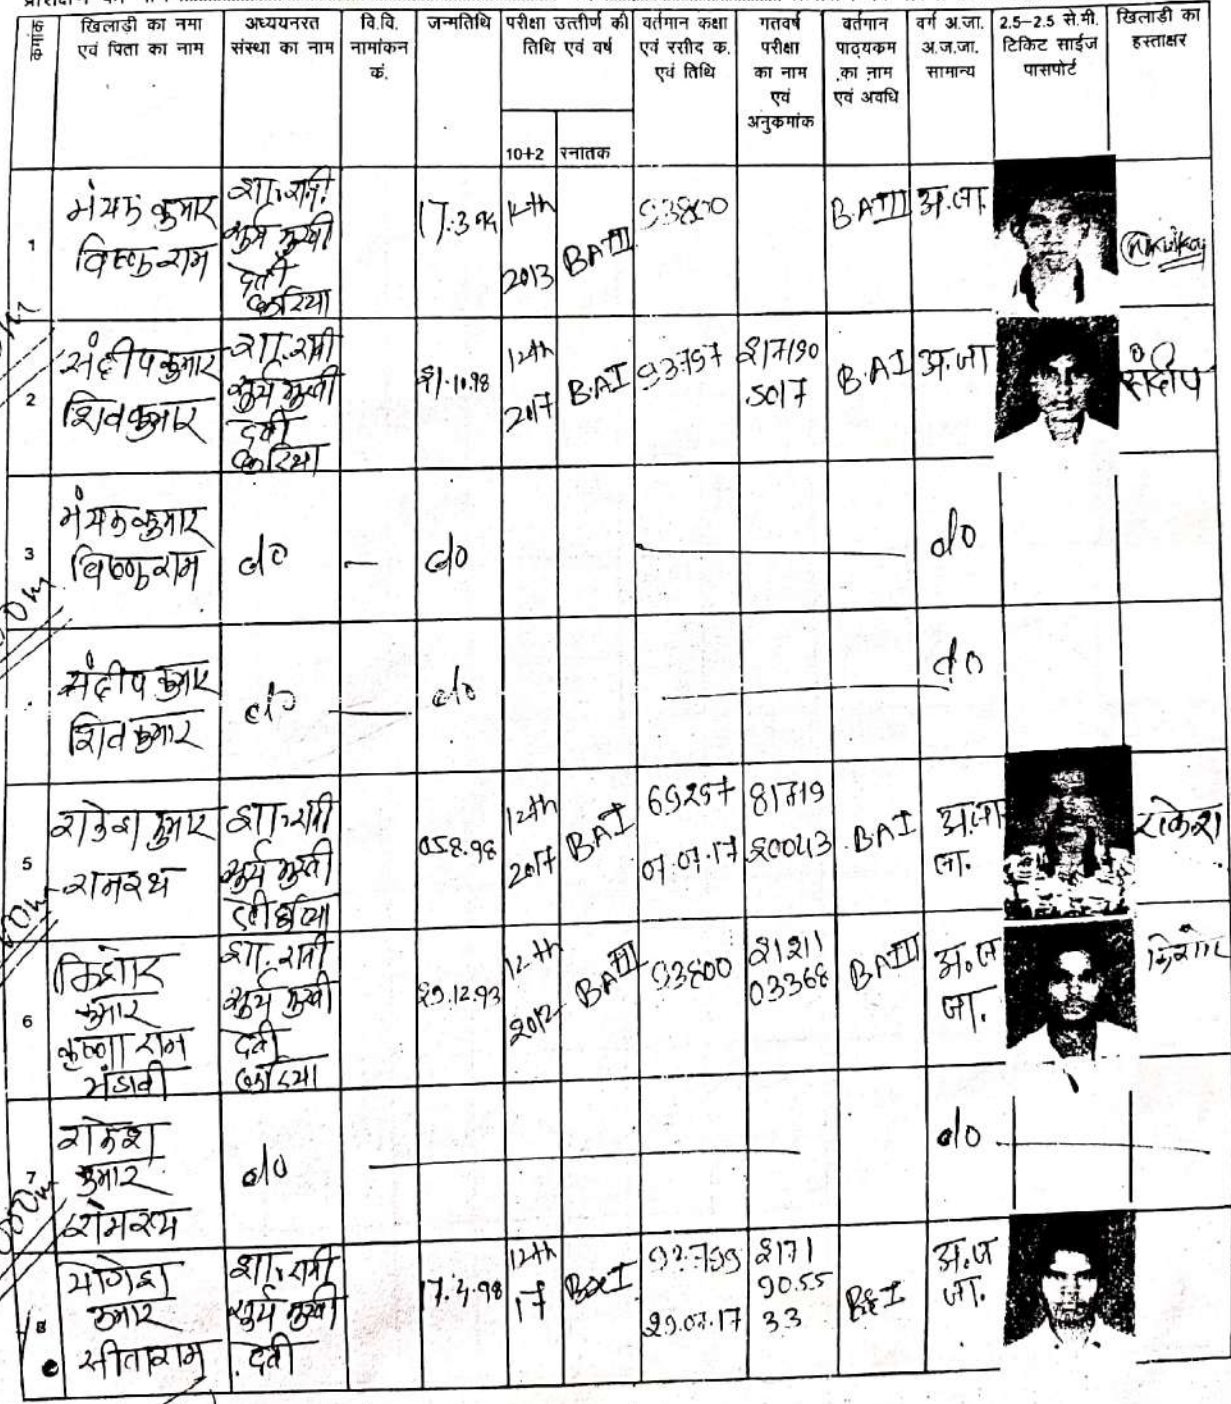 क्रमांक
खिलाड़ी का नमा
एवं पिता का नाम
अध्ययनरत
संस्था का नाम
वि.वि.
नामांकन
कं.
जन्मतिथि
परीक्षा उत्तीर्ण की
तिथि एवं वर्ष
10+2
स्नातक
वर्तमान कक्षा
एवं रसीद क.
एवं तिथि
गतवर्ष
परीक्षा
का नाम
एवं
अनुकमांक
वर्तमान
पाठ्यकम
का नाम
एवं अवधि
वर्ग अ.जा.
अ.ज.जा.
सामान्य
2.5–2.5 से.मी.
टिकिट साईज
पासपोर्ट
खिलाडी का
हस्ताक्षर
1
मंयक कुमार
विष्णु राम
शा. रानी
सुर्य मुखी
देवी
छुरिया
17.3.94
12th
2013
BA III
93800
B.A III
अ.जा.
2
संदीप कुमार
शिवकुमार
शा. रानी
सुर्य मुखी
देवी
छुरिया
21.10.98
12th
2017
B.A I
93797
217190
5017
B.A I
अ.जा
संदीप
3
मंयक कुमार
विष्णु राम
do
—
do
do
संदीप कुमार
शिव कुमार
do
do
do
5
राकेश कुमार
रामरथ
शा. रानी
सुर्य मुखी
देवी छुरिया
05.8.98
12th
2017
BA I
69297
07.07.17
81719
20043
BA I
राकेश
6
किशोर
कुमार
कृष्णा राम
मंडावी
शा. रानी
सुर्य मुखी
देवी
छुरिया
29.12.93
12th
2012
BA III
93800
21211
03368
BA III
अ.ज
जा.
किशोर
7
राकेश
कुमार
रामरथ
do
do
8
योगेश
कुमार
सीताराम
शा. रानी
सुर्य मुखी
देवी
17.4.98
12th
17
92799
29.07.17
2171
90.55
33
अ.ज
जा.